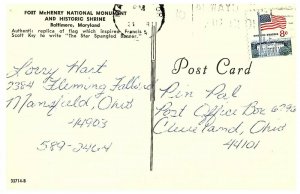 FORT McHENRY NATIONAL MONUMENT
AND HISTORIC SHRINE
Baltimore, Maryland
Authentic replica of flag which inspired Francis
Scott Key to write "The Star Spangled Banner."
PM
8¢
Post Card
Lorry Hart
2384 Fleming Falls Rd
Mansfield, Ohio
44903
589-2464
Pen Pal
Post Office Box 6792
Cleveland, Ohio
44101
35714-B